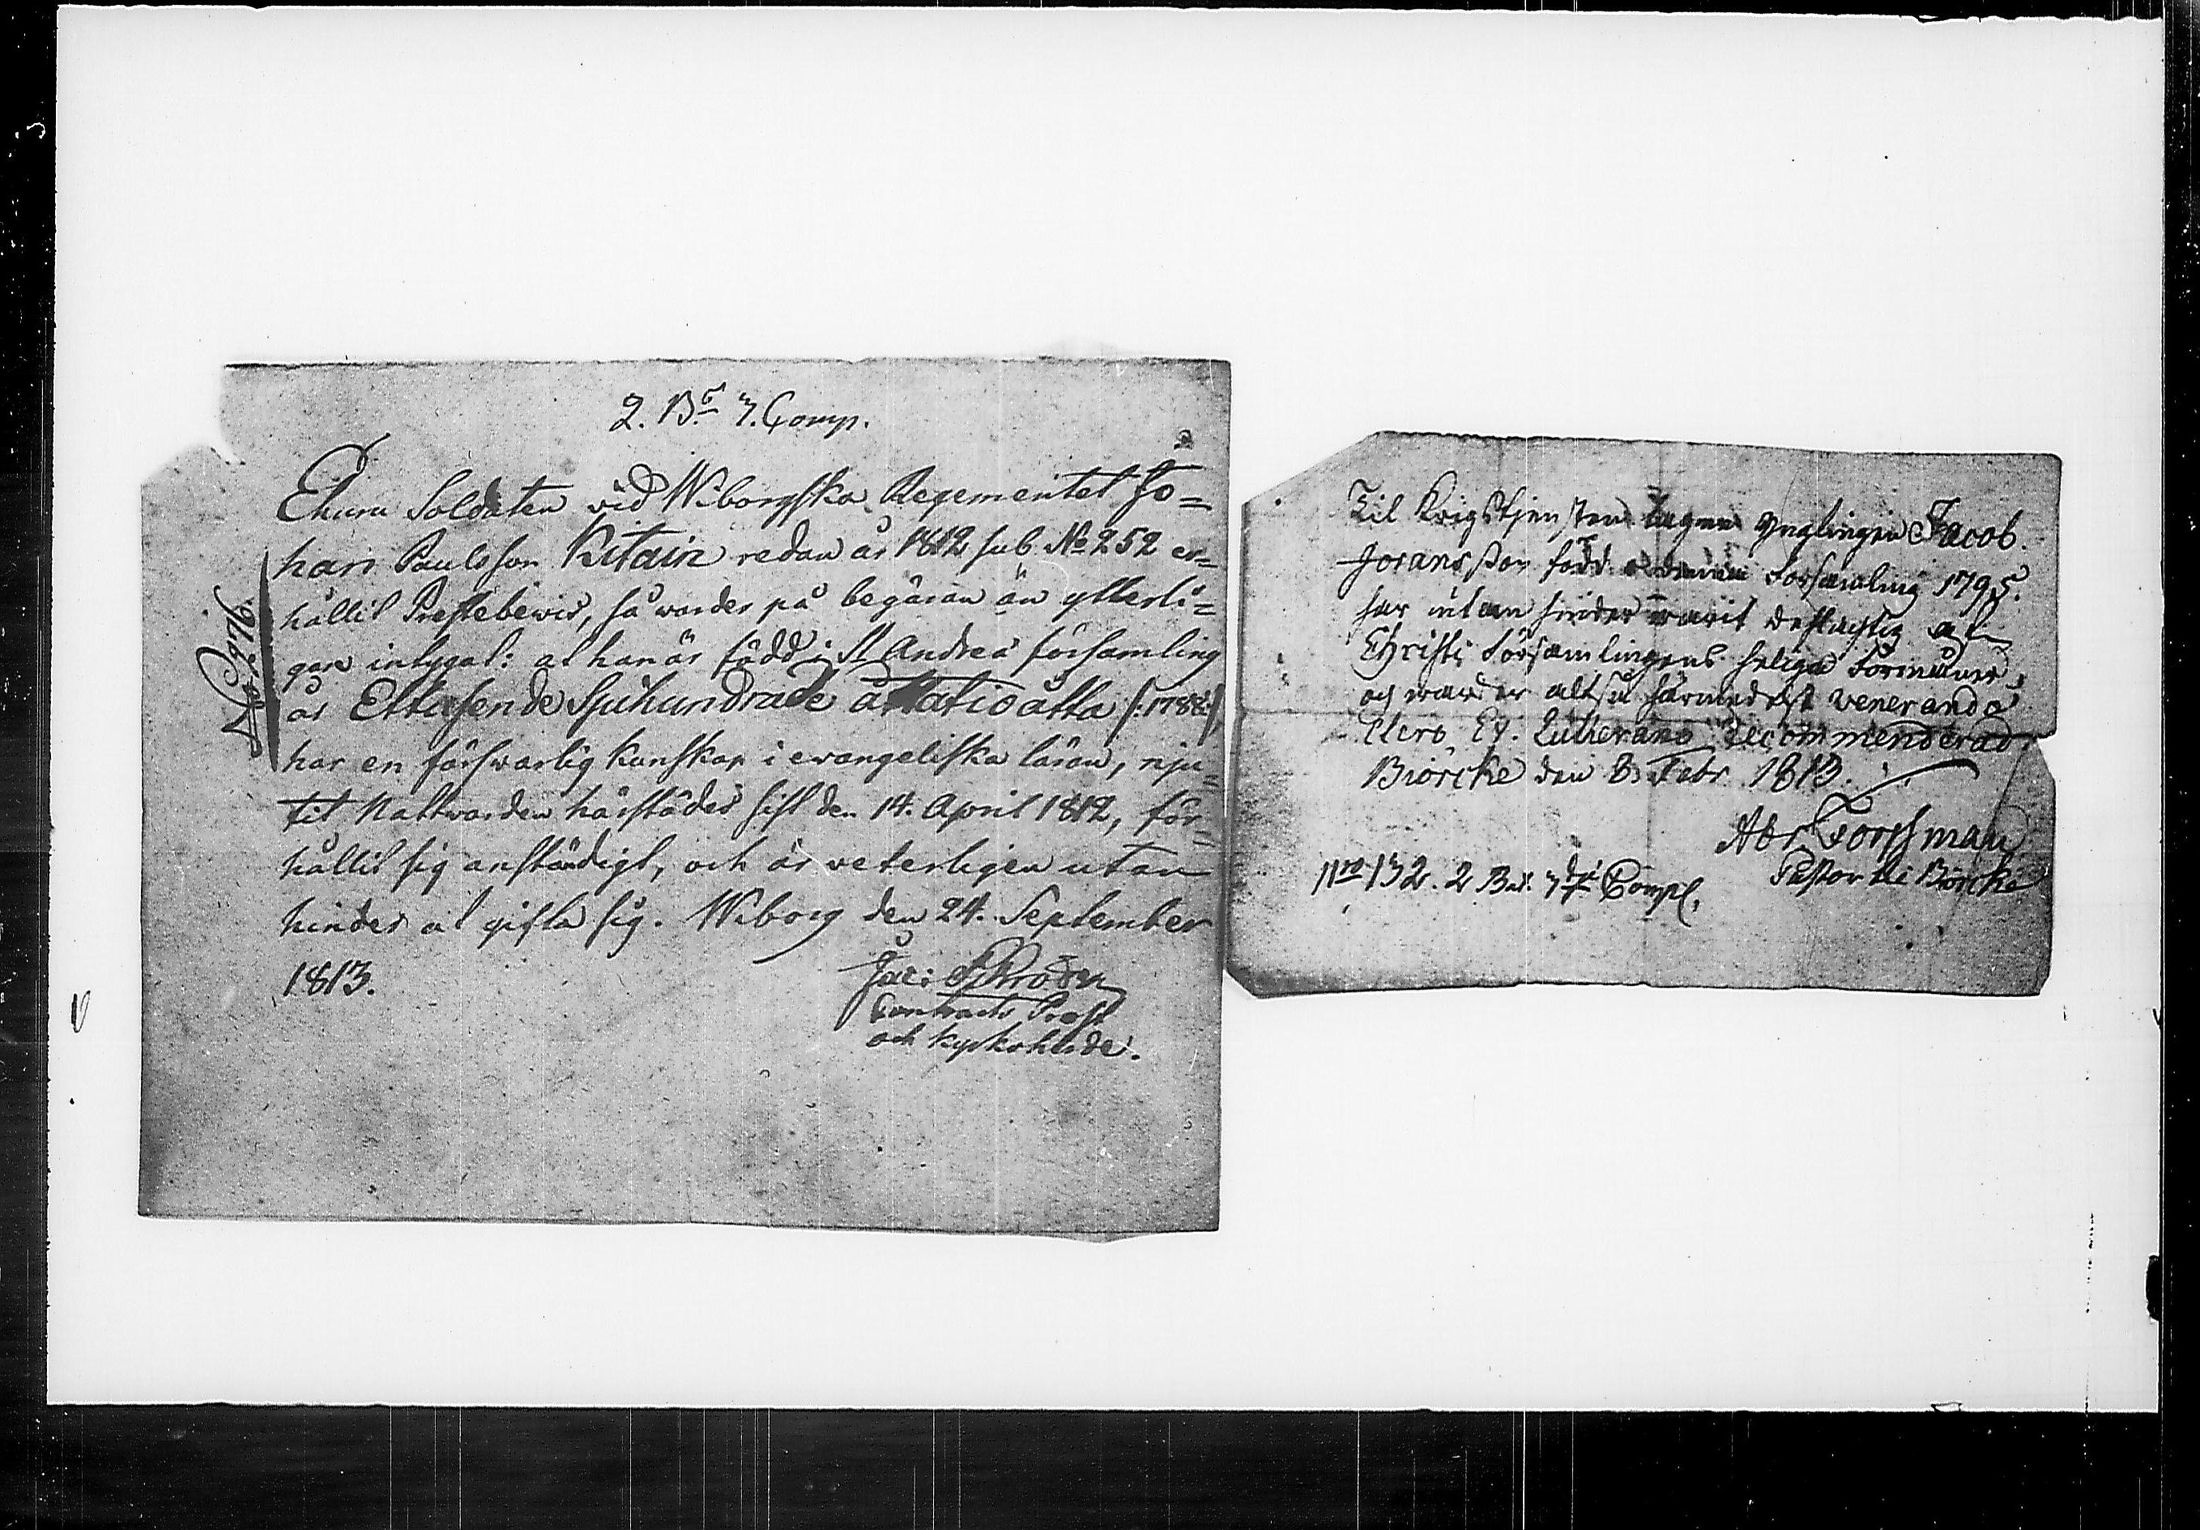 2. B.s 7. Comp.
Ehuru Soldaten vid Wiborgska Regementet Jo=
han Paulsson Kitain redan år 1812 sub No 252 er=
hållit Prestebewis, så warder på begäran än ytterli=
gare intygat: at han är född i St Andreæ församling
år Ettusende Sjuhundrade åttatio åtta (:1788:),
har en försvarlig kunskap i evangeliska läran, nju=
tit Nattwarden härstädes sist den 14. April 1812, för=
hållit sig anständigt, och är veterligen utan
hinder at gifta sig. Wiborg den 24. September
1813.
Contracts Prost
och kyrkoherde.
No 276.
Til Krigstjensten tagne Ynglingen Jacob
Joransson född i denna Församling 1795.
har utan hinder warit delhagtig af
Christi Församlingens heliga Förmåner,
och warder altså härmedelst venerando
Clero Ev. Lutherano Recommenderad.
Biorcke den 8 Febr. 1813.
Abr Forssman
Pastor i Biorcke
Nro 132. 2 Bat. 7de Comp.